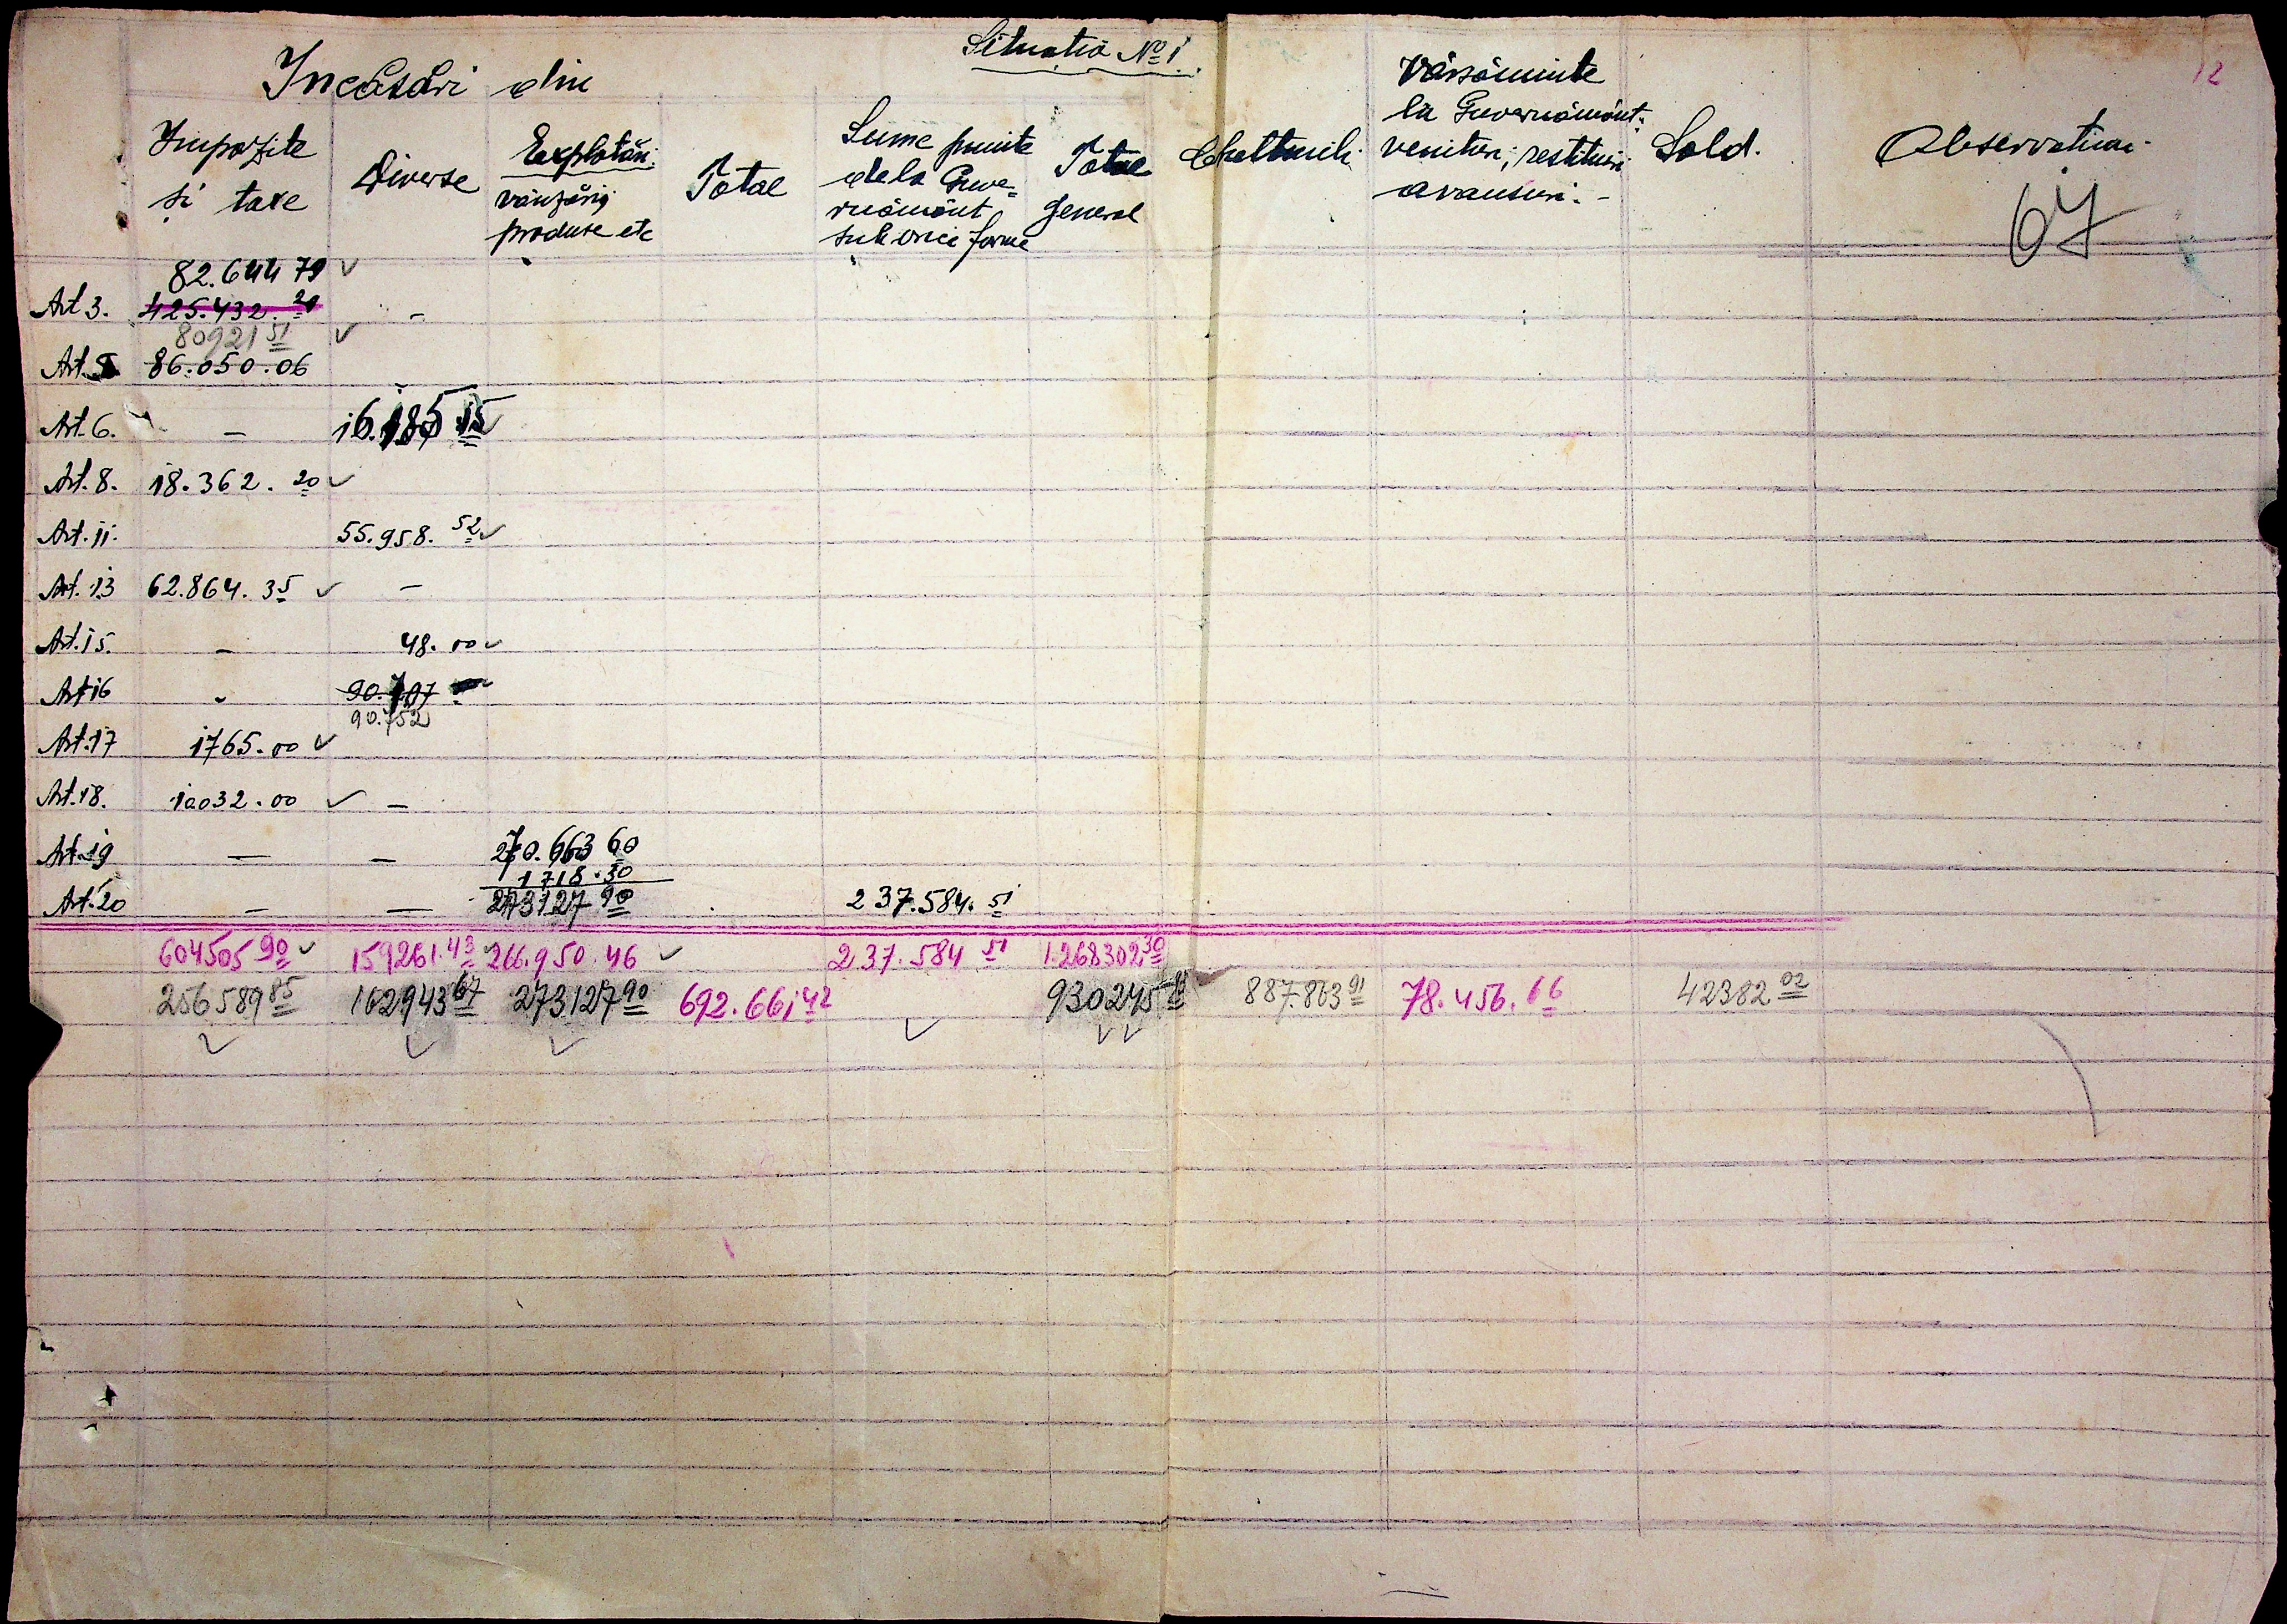 Situatia № 1
12
Incasări din
Impozite
si taxe
Diverse
Explotări
vânzări
produse etc
Total
Sume primite
dela Guver=
nământ
sub orice forme
Total
General
Cheltueli
Vărsăminte
la Guvernământ.
venituri, restituiri
avansuri. -
Sold.
Observatiuni
67
82.644 79
Art 3. 425.432. 20 -
80921 51
Art. 5 86.050.06
Art. 6. - 16.185 15
Art. 8. 18.362. 20
Art. 11. 55.958. 52
Art. 13 62.864. 35 -
Art. 15. - 48. 00
Art 16 - 90.707
90.752
Art. 17 1765.00
Art. 18. 10032.00 -
Art. 19 - - 270.663 60
1718.30
Art. 20 - - 273127 90 237.584. 51
604505 90 159261.43 266.950.46 237.584 51 1.268302 30
256589 85 162943 67 273127 90 692.661 42 930245 93 887.863 91 78.456. 66 42382 02